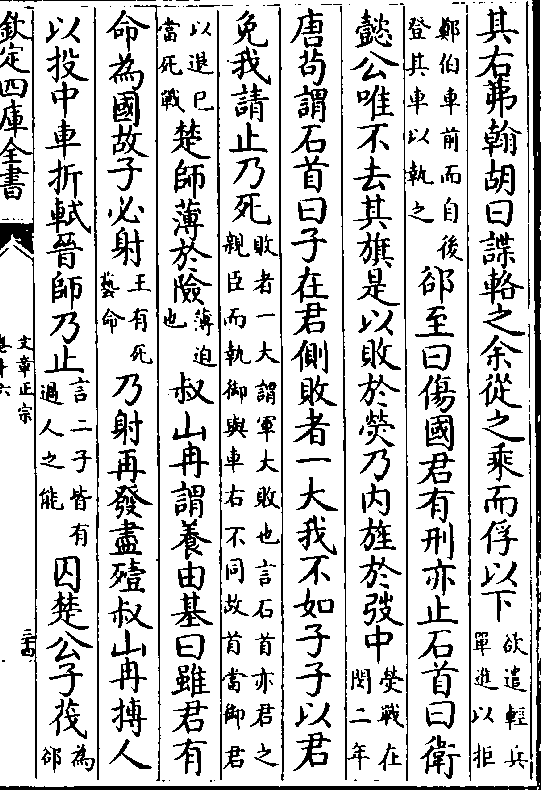 其右茀翰胡曰諜輅之余從之乘而俘以下欲遣輕兵單進以拒
鄭伯車前而自後登其車以執之郤至曰傷國君有刑亦止石首曰衛
懿公唯不去其旗是以敗於熒乃内旌於弢中熒戰在閔二年
唐茍謂石首曰子在君側敗者一大我不如子子以君
免我請止乃死敗者一大謂軍大敗也言石首亦君之親臣而執御與車右不同故首當御君
以退已當死戰楚師薄於險薄迫也叔山冉謂養由基曰雖君有
命為國故子必射王有死藝命乃射再發盡殪叔山冉搏人
以投中車折軾晉師乃止言二子皆有過人之能囚楚公子茷為郤
欽定四庫全書
文章正宗
卷十六
三十四